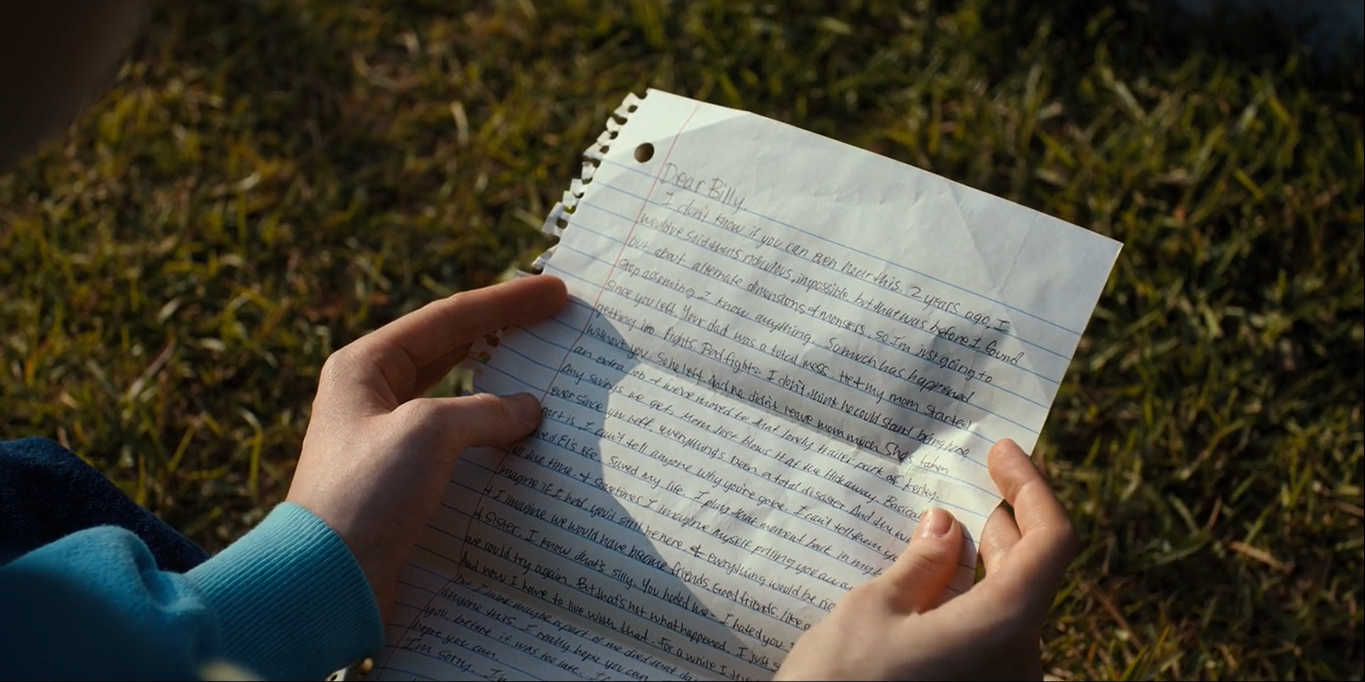 Dear Billy,
I don't know if you can even hear this. 2 years ago, I
would've said that's ridiculous, impossible but that was before I found
out about alternate dimensions & monsters, so I'm just going to
stop assuming I know anything. So much has happened
since you left. Your dad was a total mess. He & my mom started
getting in fights. Bad fights. I don't think he could stand being here
without you. So he left. And he didn't leave mom much. She's taken
an extra job & we've moved to that lovely trailer park off Kerley.
Any savings we get, Mom just blows it at the Hideaway. Basical
ever since you left, everything's been a total disaster. And the wor
part is, I can't tell anyone why you're gone. I can't tell them you
ved El's life. Saved my life. I play that moment back in my he
all the time. & sometimes I imagine myself pulling you away
imagine if I had, you'd still be here. & everything would be
& I imagine we would have become friends. Good friends. like a
& sister. I know that's silly. You hated me. I hated you.
we could try again. But that's not what happened. I just s
And now I have to live with that. For a while I
or I have maybe a part of me died that da
anyone this. I really hope you can
you, before it was too late. I
hope you can
I'm sorry.